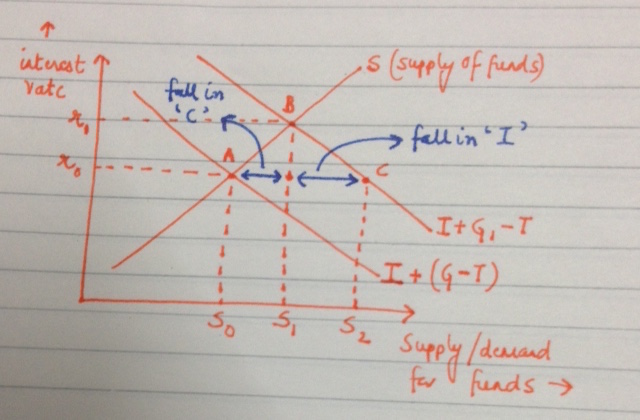 ↑
interest
rate
S (supply of funds)
fall in
'C'
B
r₁
fall in 'I'
A
r₀
C
I+G₁-T
I+(G-T)
S₀ S₁ S₂
Supply/demand
for funds →